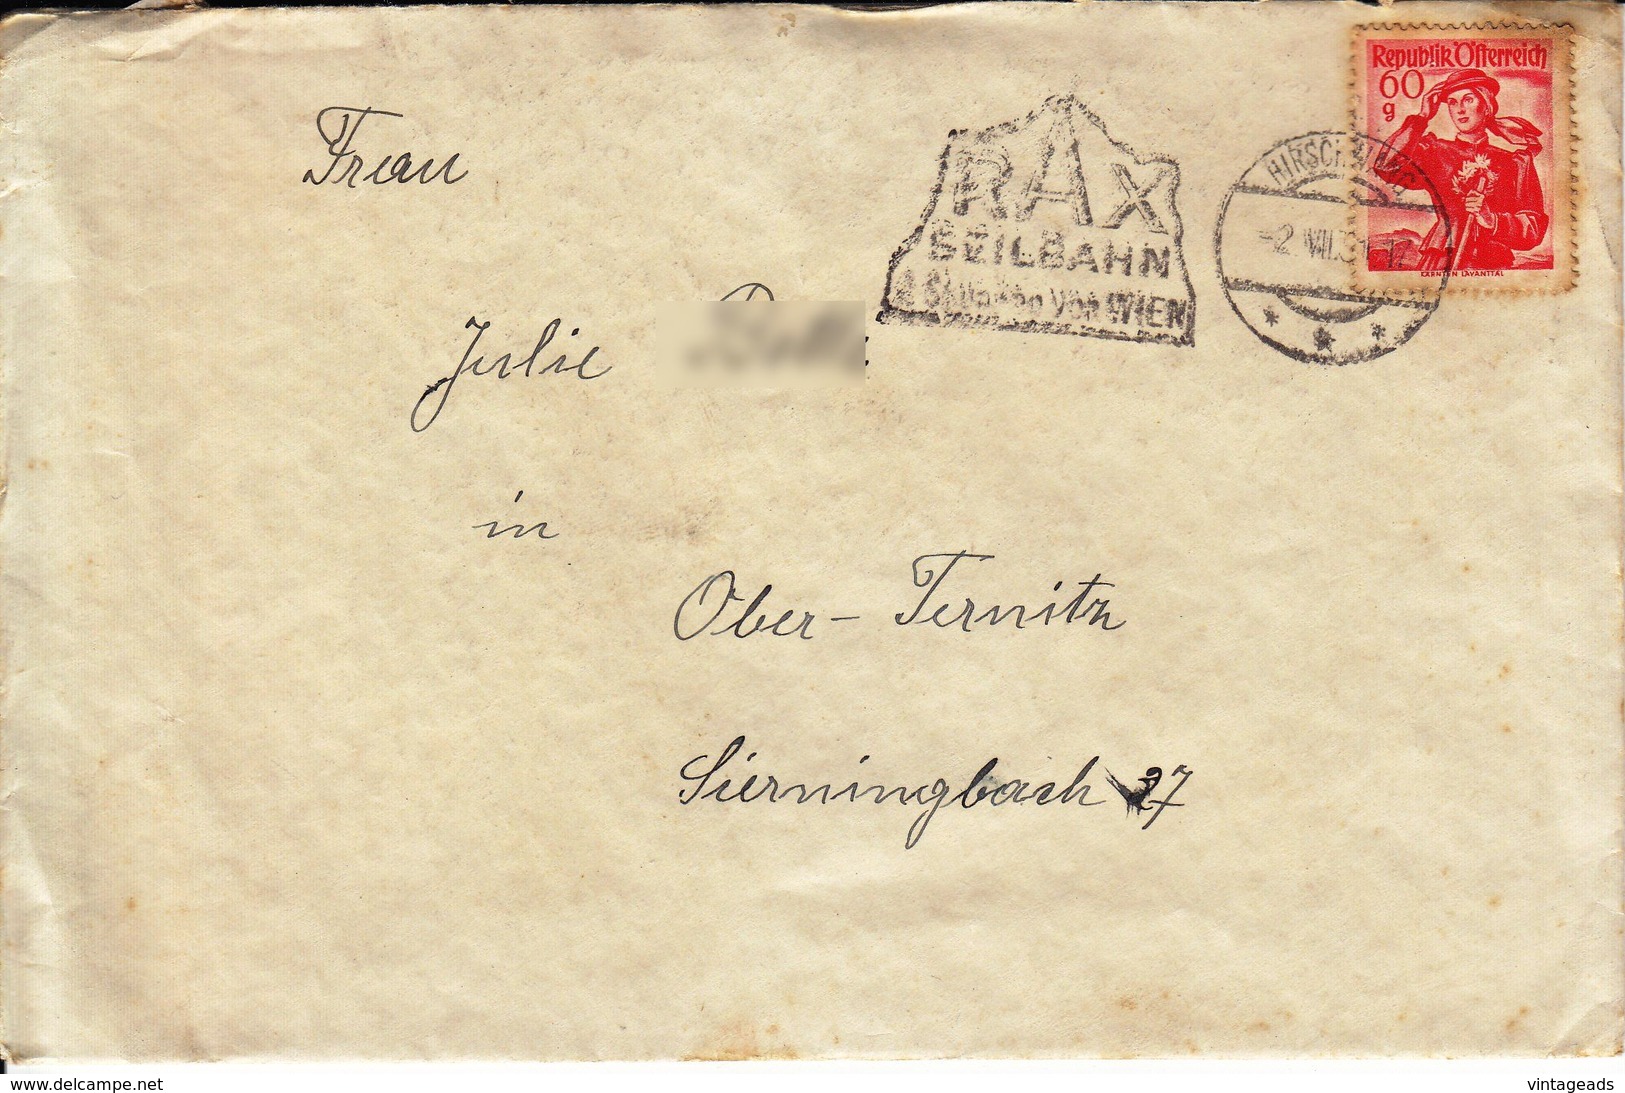 Republik Österreich
60
g
KÄRNTEN LAVANTTAL
HIRSCHWANG
-2. VIII.51-17
RAX
SEILBAHN
2 Stunden von WIEN
Frau
Julie
in
Ober-Ternitz
Sierningbach 27
www.delcampe.net
vintageads